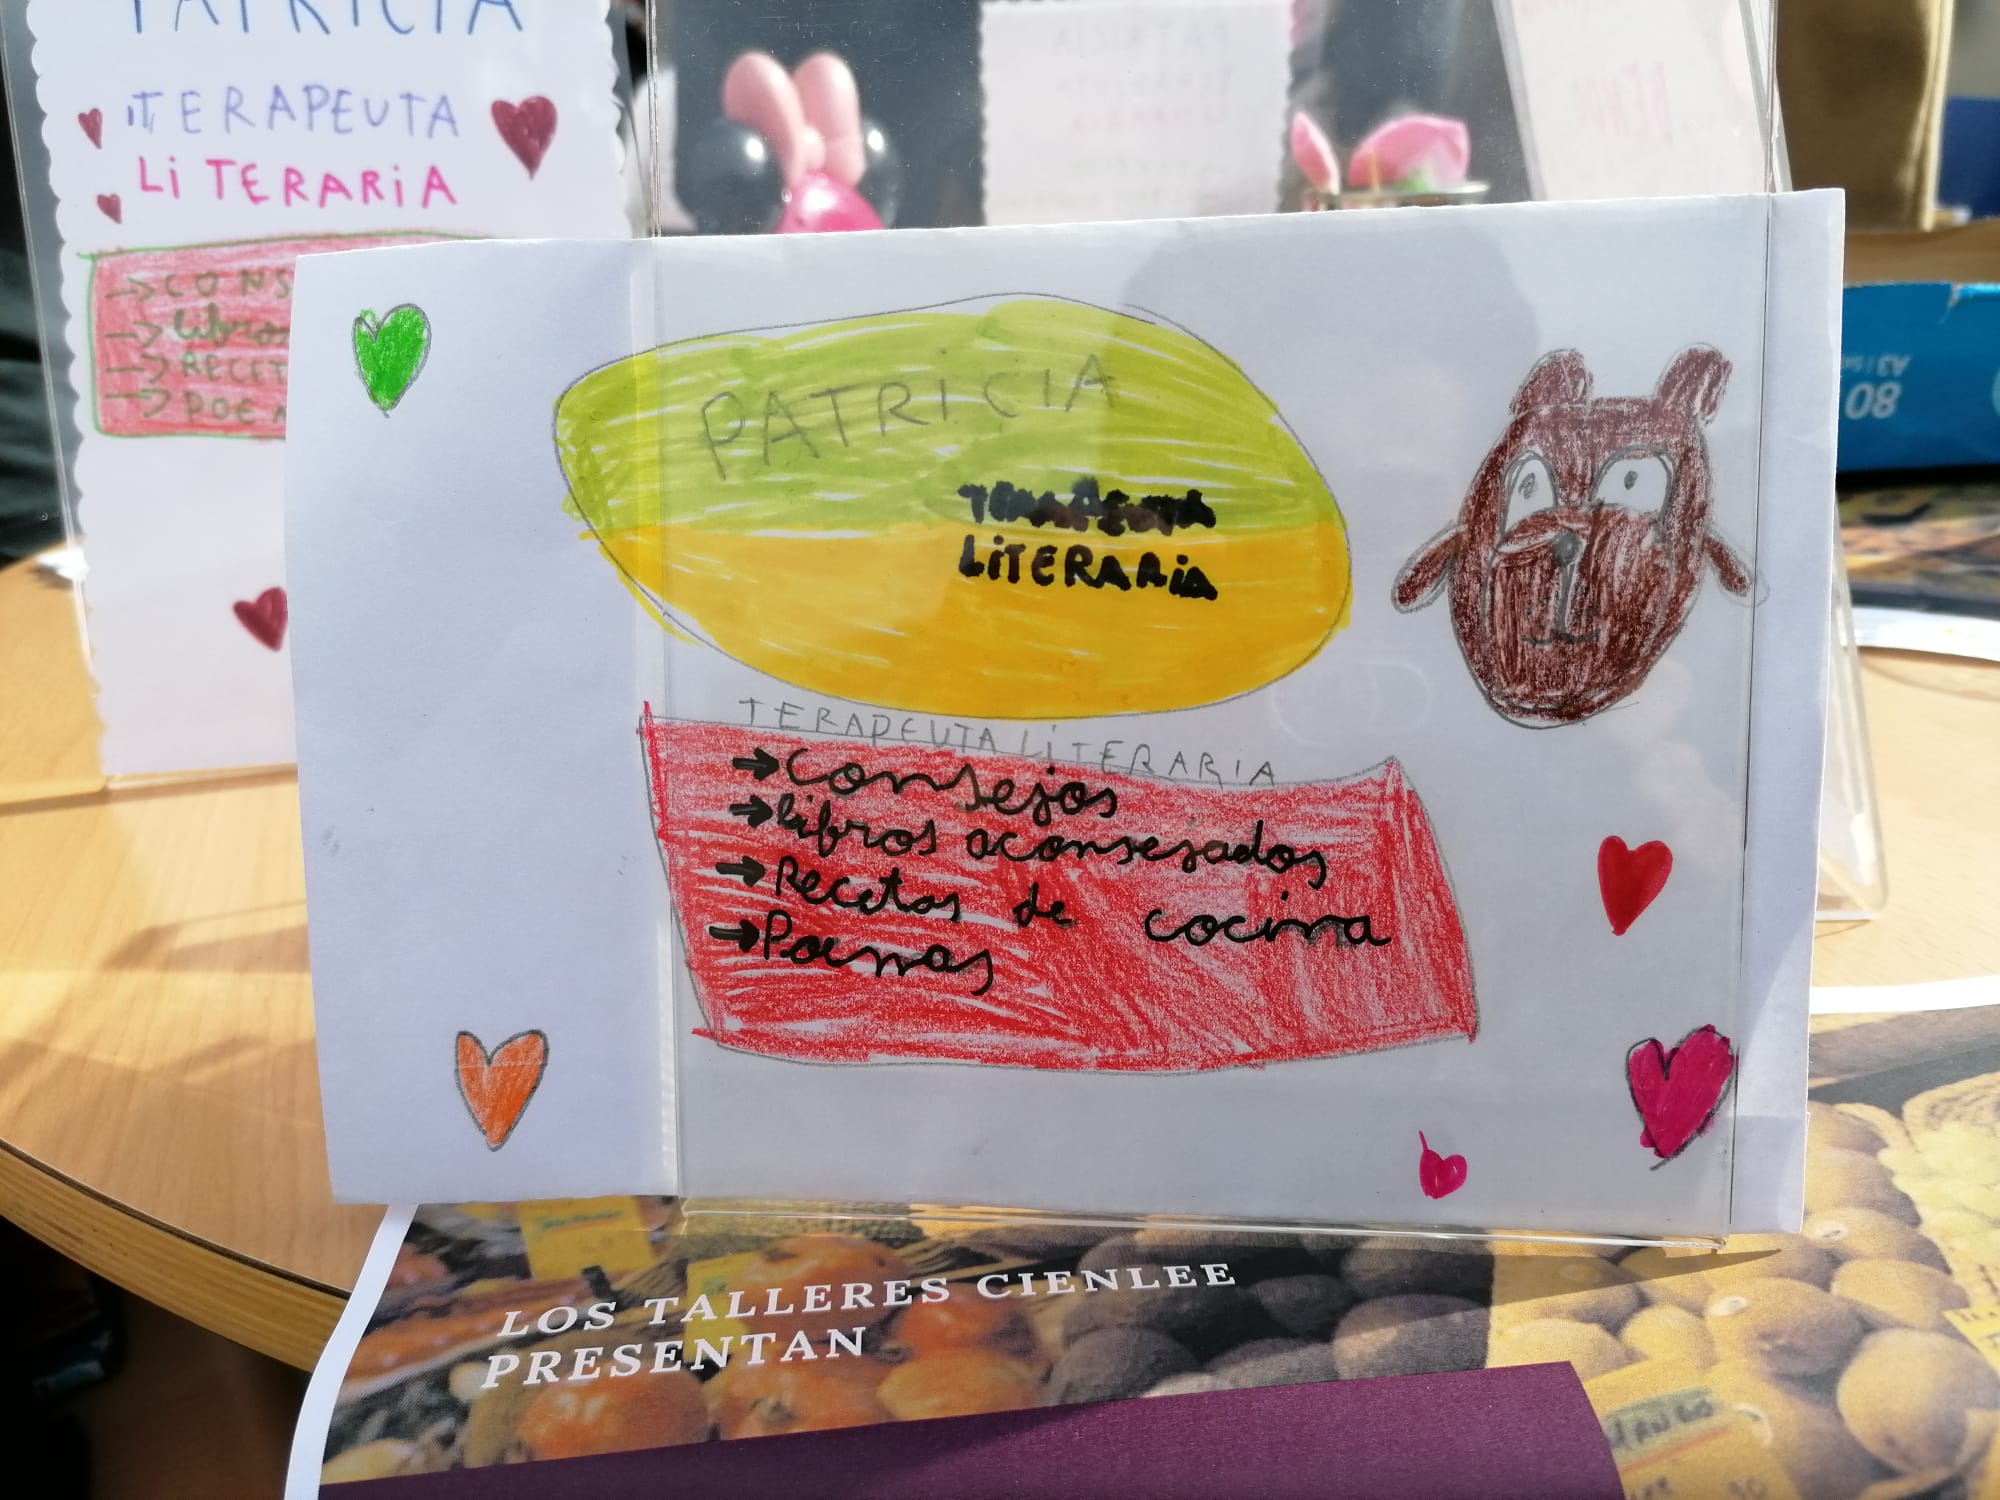 PATRICIA
TERAPEUTA
LiTERARiA
→CONS
→libros
→RECET
→POEM
PATRICIA
TERAPEUTA
LiTERARia
TERAPEUTA LiTERARIA
→Consejos
→libros aconsejados
→Recetas de cocina
→Poemas
80
A3
LOS TALLERES CIENLEE
PRESENTAN
MANGO